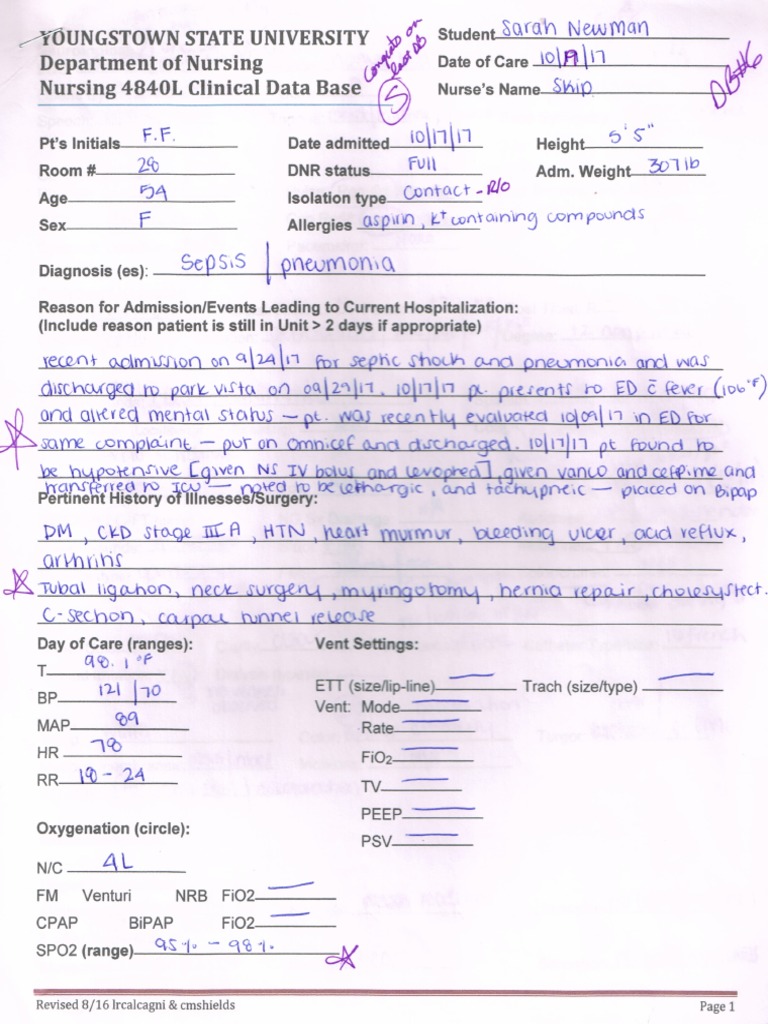 YOUNGSTOWN STATE UNIVERSITY
Department of Nursing
Nursing 4840L Clinical Data Base
Congrats on last DB
S
Student Sarah Newman
Date of Care 10/19/17
Nurse's Name Skip
DB#6
Pt's Initials F.F.
Date admitted 10/17/17
Height 5'5"
Room # 28
DNR status Full
Adm. Weight 307lb
Age 54
Isolation type Contact - R/O
Sex F
Allergies aspirin, K+ containing compounds
Diagnosis (es): Sepsis / pneumonia
Reason for Admission/Events Leading to Current Hospitalization:
(Include reason patient is still in Unit > 2 days if appropriate)
recent admission on 9/24/17 for septic shock and pneumonia and was
discharged to park vista on 09/29/17. 10/17/17 pt. presents to ED c̄ fever (106°F)
and altered mental status – pt. was recently evaluated 10/09/17 in ED for
same complaint – put on omnicef and discharged. 10/17/17 pt found to
be hypotensive [given NS IV bolus and levophed], given vanco and cefepime and
transferred to ICU – noted to be lethargic, and tachypneic – placed on Bipap
Pertinent History of Illnesses/Surgery:
DM, CKD stage III A, HTN, heart murmur, bleeding ulcer, acid reflux,
arthritis
Tubal ligation, neck surgery, myringotomy, hernia repair, cholesystect.
C-section, carpal tunnel release
Day of Care (ranges):
Vent Settings:
T 98.1°F
BP 121/70
MAP 89
HR 78
RR 18 - 24
ETT (size/lip-line)
Trach (size/type)
Vent: Mode
Rate
FiO2
TV
PEEP
PSV
Oxygenation (circle):
N/C 4L
FM Venturi NRB FiO2
CPAP BiPAP FiO2
SPO2 (range) 95% - 98%
Revised 8/16 lrcalcagni & cmshields
Page 1